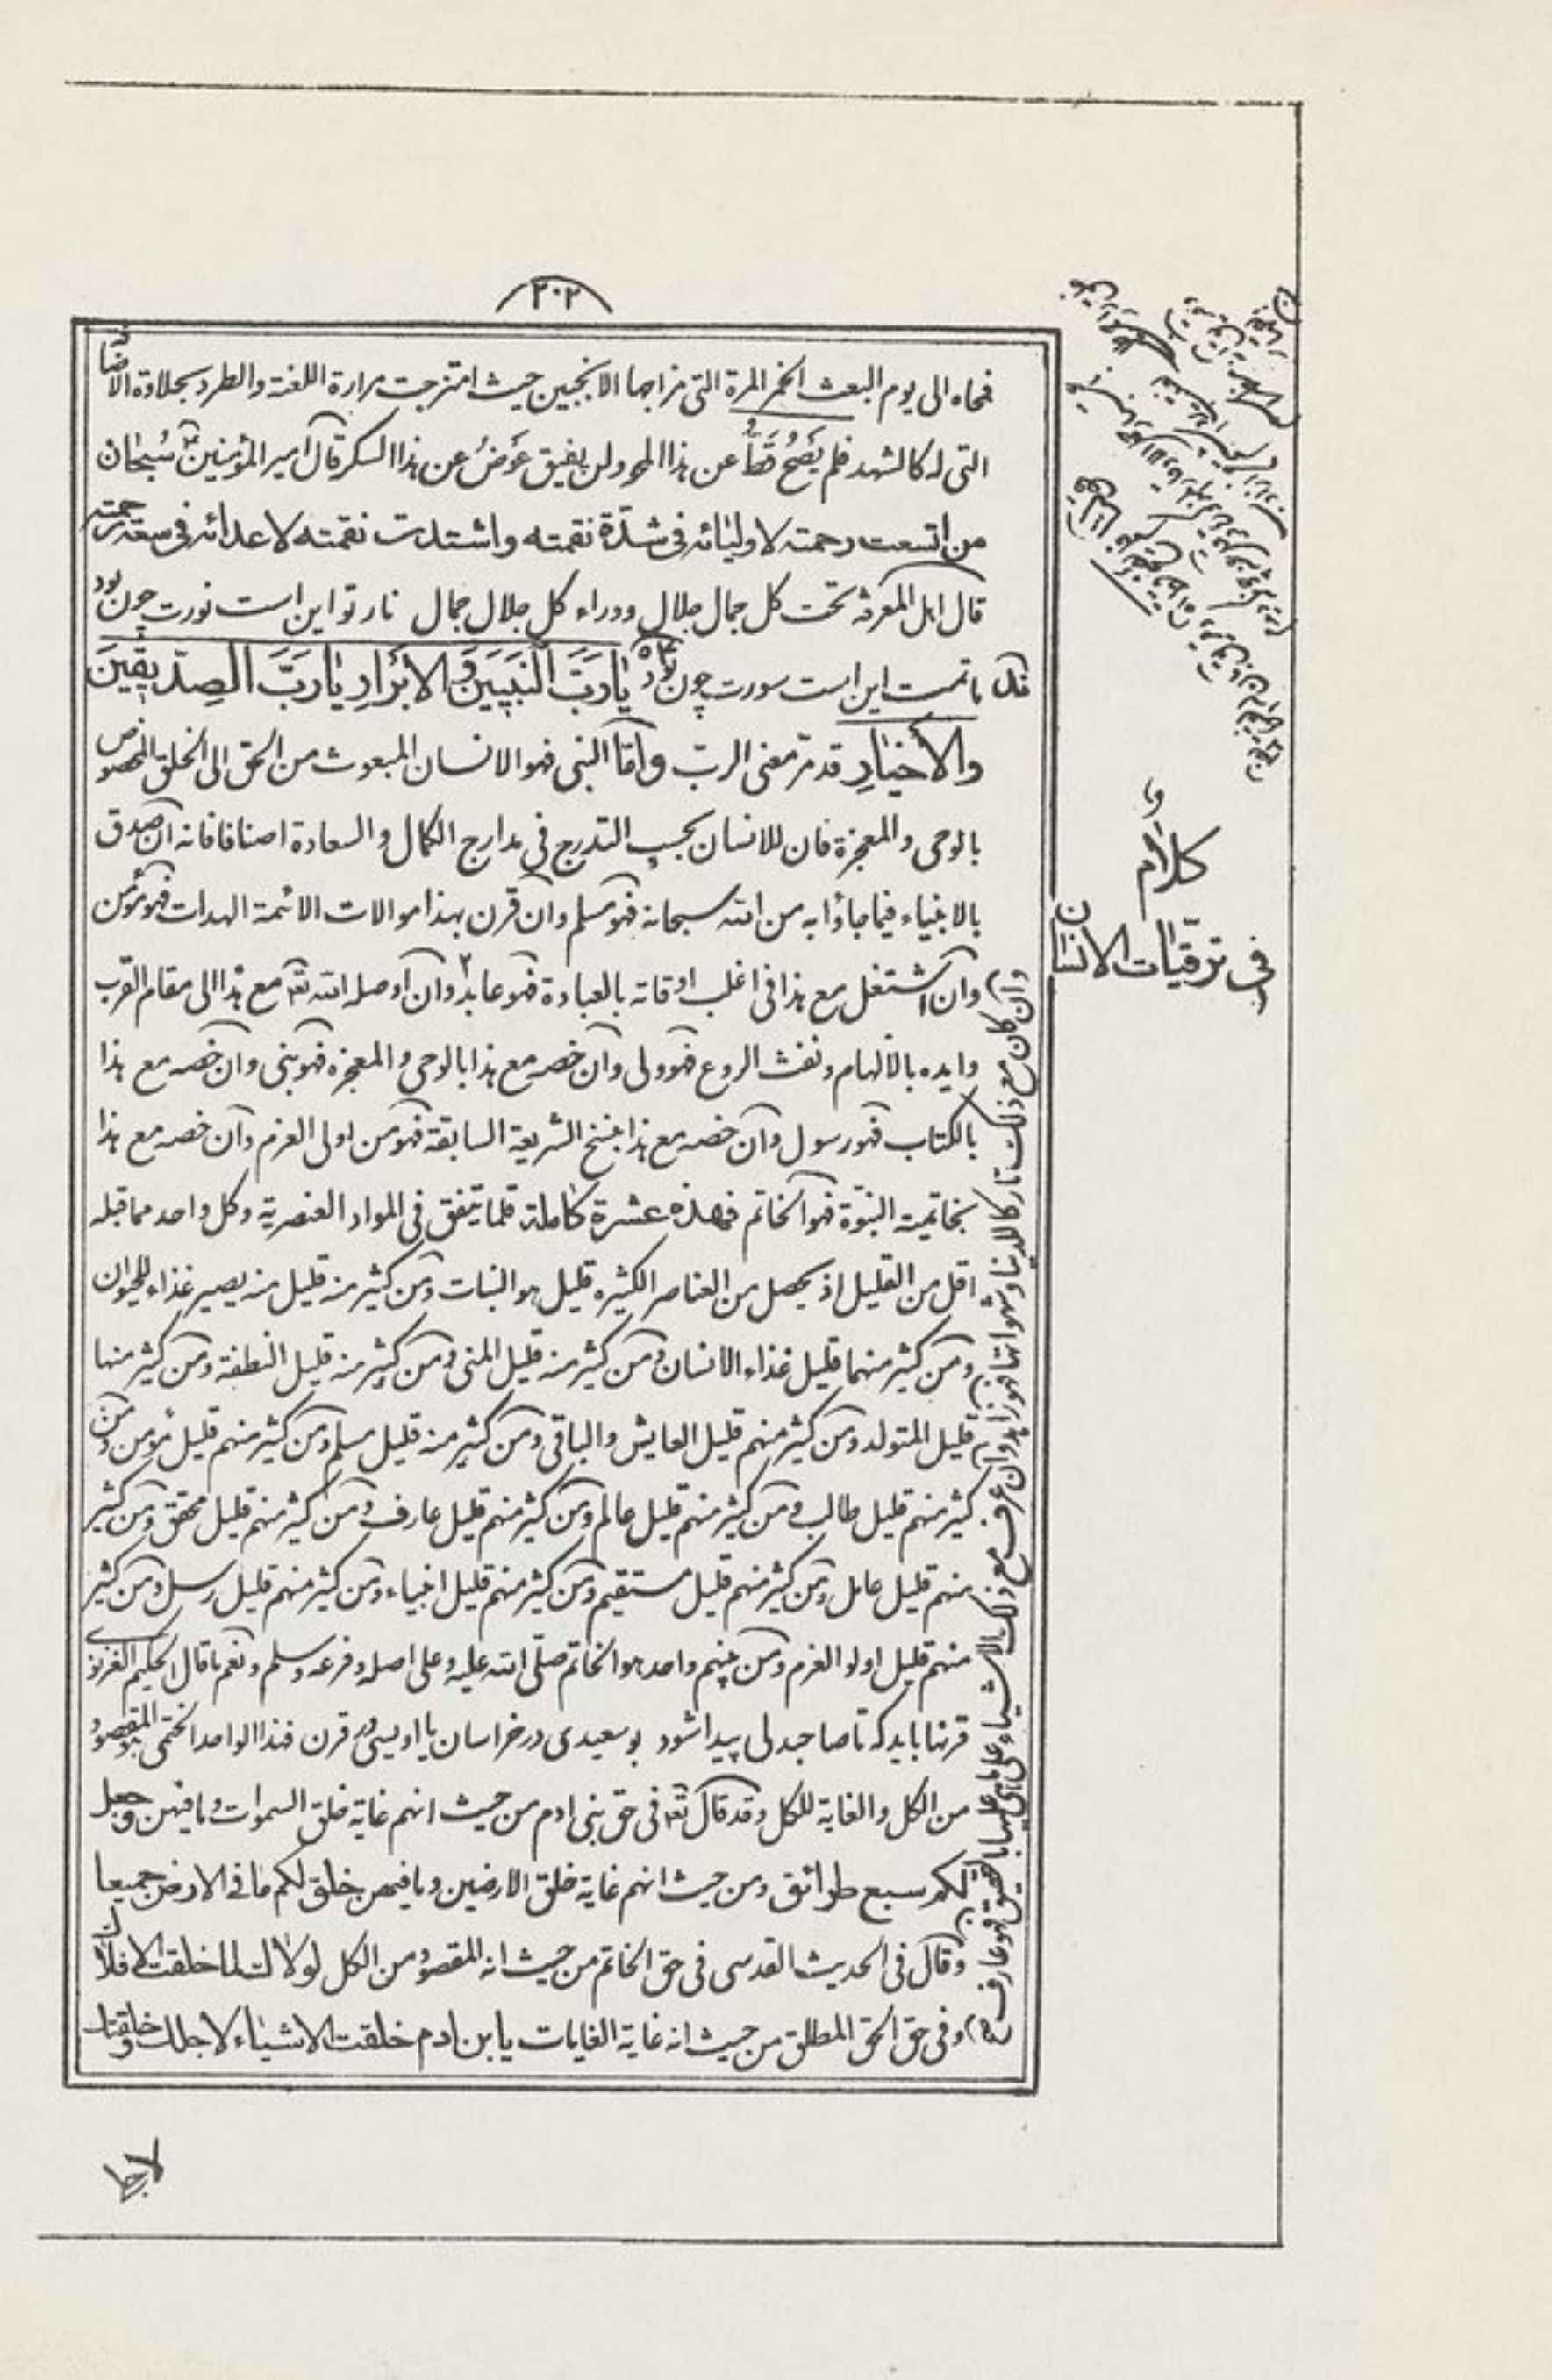 ٢٠٢
فحاه الى يوم البعث الخمر المرة التى مزاجها الانجبين حيث امتزجت مرارة اللغنة والطرد بحلاوة الاضا
التى له كالشهد فلم يَصْحُ قَطُّ عن هذا المحو ولن يفيق عَوَضُ عن هذا السكر قال امير المؤمنين ع سُبحان
من اتسعت رحمته لاوليائه فى شدّة نقمته واشتدت نقمته لاعدائه فى سعة رحمته
قال اهل المعرفة تحت كل جمال جلال ووراء كل جلال جمال نار تو اين است نورت چون بود
ماتمت اين است سورت چون بود يا رَبَّ النَبيّينَ وَالاَبْرارِ يا رَبَّ الصِدّيقينَ
والأخيارِ قد مرّ معنى الربّ وامّا النبى فهو الانسان المبعوث من الحق الى الخلق المخصوص
بالوحى والمعجزة فان للانسان بحسب التدرج فى مدارج الكمال والسعادة اصنافا فانه ان صدق
بالانبياء فيما جاؤا به من الله سبحانه فهو مسلم وان قرن بهذا موالات الائمة الهدات فهو مؤمن
وان اشتغل مع هذا فى اغلب اوقاته بالعبادة فهو عابد وان اوصله الله تعه مع هذا الى مقام القرب
وايده بالالهام ونفث الروع فهو ولى وان خصه مع هذا بالوحى والمعجزه فهو نبى وان خصه مع هذا
بالكتاب فهو رسول وان خصه مع هذا بنسخ الشريعة السابقة فهو من اولى العزم وان خصه مع هذا
بخاتمية النبوّة فهو الخاتم فهذه عشرة كاملة قلما يتفق فى المواد العنصرية وكل واحد مما قبله
اقل من القليل اذ يحصل من العناصر الكثيره قليل هو النبات ومن كثير منه قليل منه يصير غذاء للحيوان
ومن كثير منهما قليل غذاء الانسان ومن كثير منه قليل المنى ومن كثير منه قليل النطفة ومن كثير منها
قليل المتولد ومن كثير منهم قليل العايش والباقى ومن كثير منه قليل مسلم ومن كثير منهم قليل مؤمن ومن
كثير منهم قليل طالب ومن كثير منهم قليل عالم ومن كثير منهم قليل عارف ومن كثير منهم قليل محقق ومن كثير
منهم قليل عامل ومن كثير منهم قليل مستقيم ومن كثير منهم قليل انبياء ومن كثير منهم قليل رسل ومن كثير
منهم قليل اولوا العزم ومن بينهم واحد هو الخاتم صلّى الله عليه وعلى اصله وفرعه وسلم ونعم ما قال الحكيم الغزنوى
قرنها بايد كه تا صاحبدلى پيدا شود بو سعيدى در خراسان يا اويسى در قرن فهذا الواحد الختمى هو المقصود
من الكل والغاية للكل وقد قال تعه فى حق بنى ادم من حيث انهم غاية خلق السموات وما فيهن وجعل
لكم سبع طرائق ومن حيث انهم غاية خلق الارضين وما فيهن خلق لكم ما فى الارض جميعا
وقال فى الحديث القدسى فى حق الخاتم من حيث انه المقصود من الكل لولاك لما خلقت الافلاك
وفى حق الحق المطلق من حيث انه غاية الغايات يا بن ادم خلقت الاشياء لاجلك وخلقتك
لاجلى
وان كان مع ذلك تاركا للدنيا وشهواتها فهو زاهد وان عرف مع ذلك الاشياء على ما هى عليها بالتحقيق فهو عارف
كلام
فى ترقيات الانسان